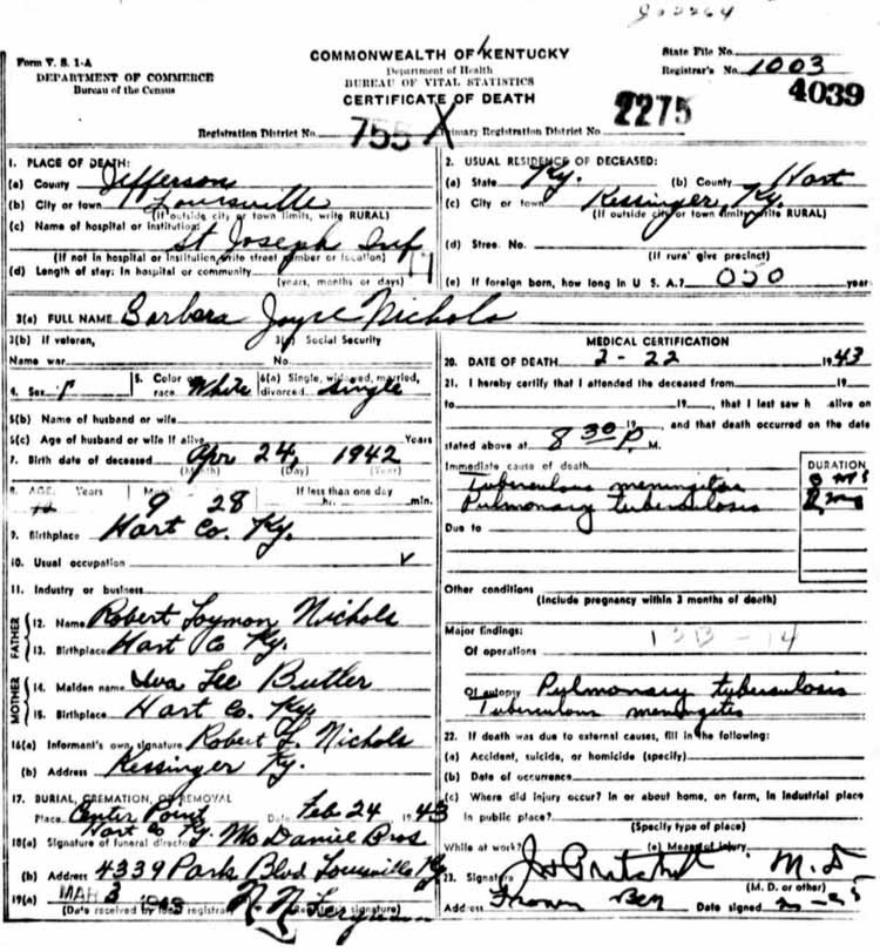 Form V. S. 1-A
DEPARTMENT OF COMMERCE
Bureau of the Census
COMMONWEALTH OF KENTUCKY
Department of Health
BUREAU OF VITAL STATISTICS
CERTIFICATE OF DEATH
State File No.
Registrar's No. 1003
4039
Registration District No. 755 X Primary Registration District No. 2275
1. PLACE OF DEATH:
(a) County Jefferson
(b) City or town Louisville
(If outside city or town limits, write RURAL)
(c) Name of hospital or institution:
St Joseph Inf
(If not in hospital or institution, write street number or location)
(d) Length of stay: In hospital or community
(years, months or days)
2. USUAL RESIDENCE OF DECEASED:
(a) State Ky. (b) County Hart
(c) City or town Kessinger, Ky.
(If outside city or town limits write RURAL)
(d) Street No.
(If rural give precinct)
(e) If foreign born, how long in U S. A.? years
3(a) FULL NAME Barbara Joyce Nichols
3(b) If veteran,
Name war
3(c) Social Security
No.
4. Sex F 5. Color or race White 6(a) Single, widowed, married, divorced single
6(b) Name of husband or wife
6(c) Age of husband or wife if alive Years
7. Birth date of deceased Apr 24, 1942
(Month) (Day) (Year)
8. AGE: Years Months Days If less than one day
9 28 hr. min.
9. Birthplace Hart Co. Ky.
10. Usual occupation
11. Industry or business
FATHER
12. Name Robert Loymon Nichols
13. Birthplace Hart Co Ky.
MOTHER
14. Maiden name Iva Lee Butler
15. Birthplace Hart Co. Ky
16(a) Informant's own signature Robert L. Nichols
(b) Address Kessinger Ky.
17. BURIAL, CREMATION, OR REMOVAL
Place Center Point Date Feb 24 1943
Hart Co Ky.
18(a) Signature of funeral director McDaniel Bros
(b) Address 4339 Park Blvd Louisville Ky
19(a) MAR 3 1943
(Date received by local registrar) (Registrar's signature)
MEDICAL CERTIFICATION
20. DATE OF DEATH 2 - 22 1943
21. I hereby certify that I attended the deceased from 19
to 19, that I last saw h alive on
19, and that death occurred on the date
stated above at 8 30 P. M.
Immediate cause of death
DURATION
Tuberculous meningitis
Pulmonary tuberculosis
Due to
Other conditions
(Include pregnancy within 3 months of death)
Major findings:
Of operations
13B - 14
Of autopsy Pulmonary tuberculosis
Tuberculous meningitis
22. If death was due to external causes, fill in the following:
(a) Accident, suicide, or homicide (specify)
(b) Date of occurrence
(c) Where did injury occur? In or about home, on farm, in industrial place
in public place?
(Specify type of place)
While at work? (e) Means of injury
23. Signature M. D
(M. D. or other)
Address Date signed